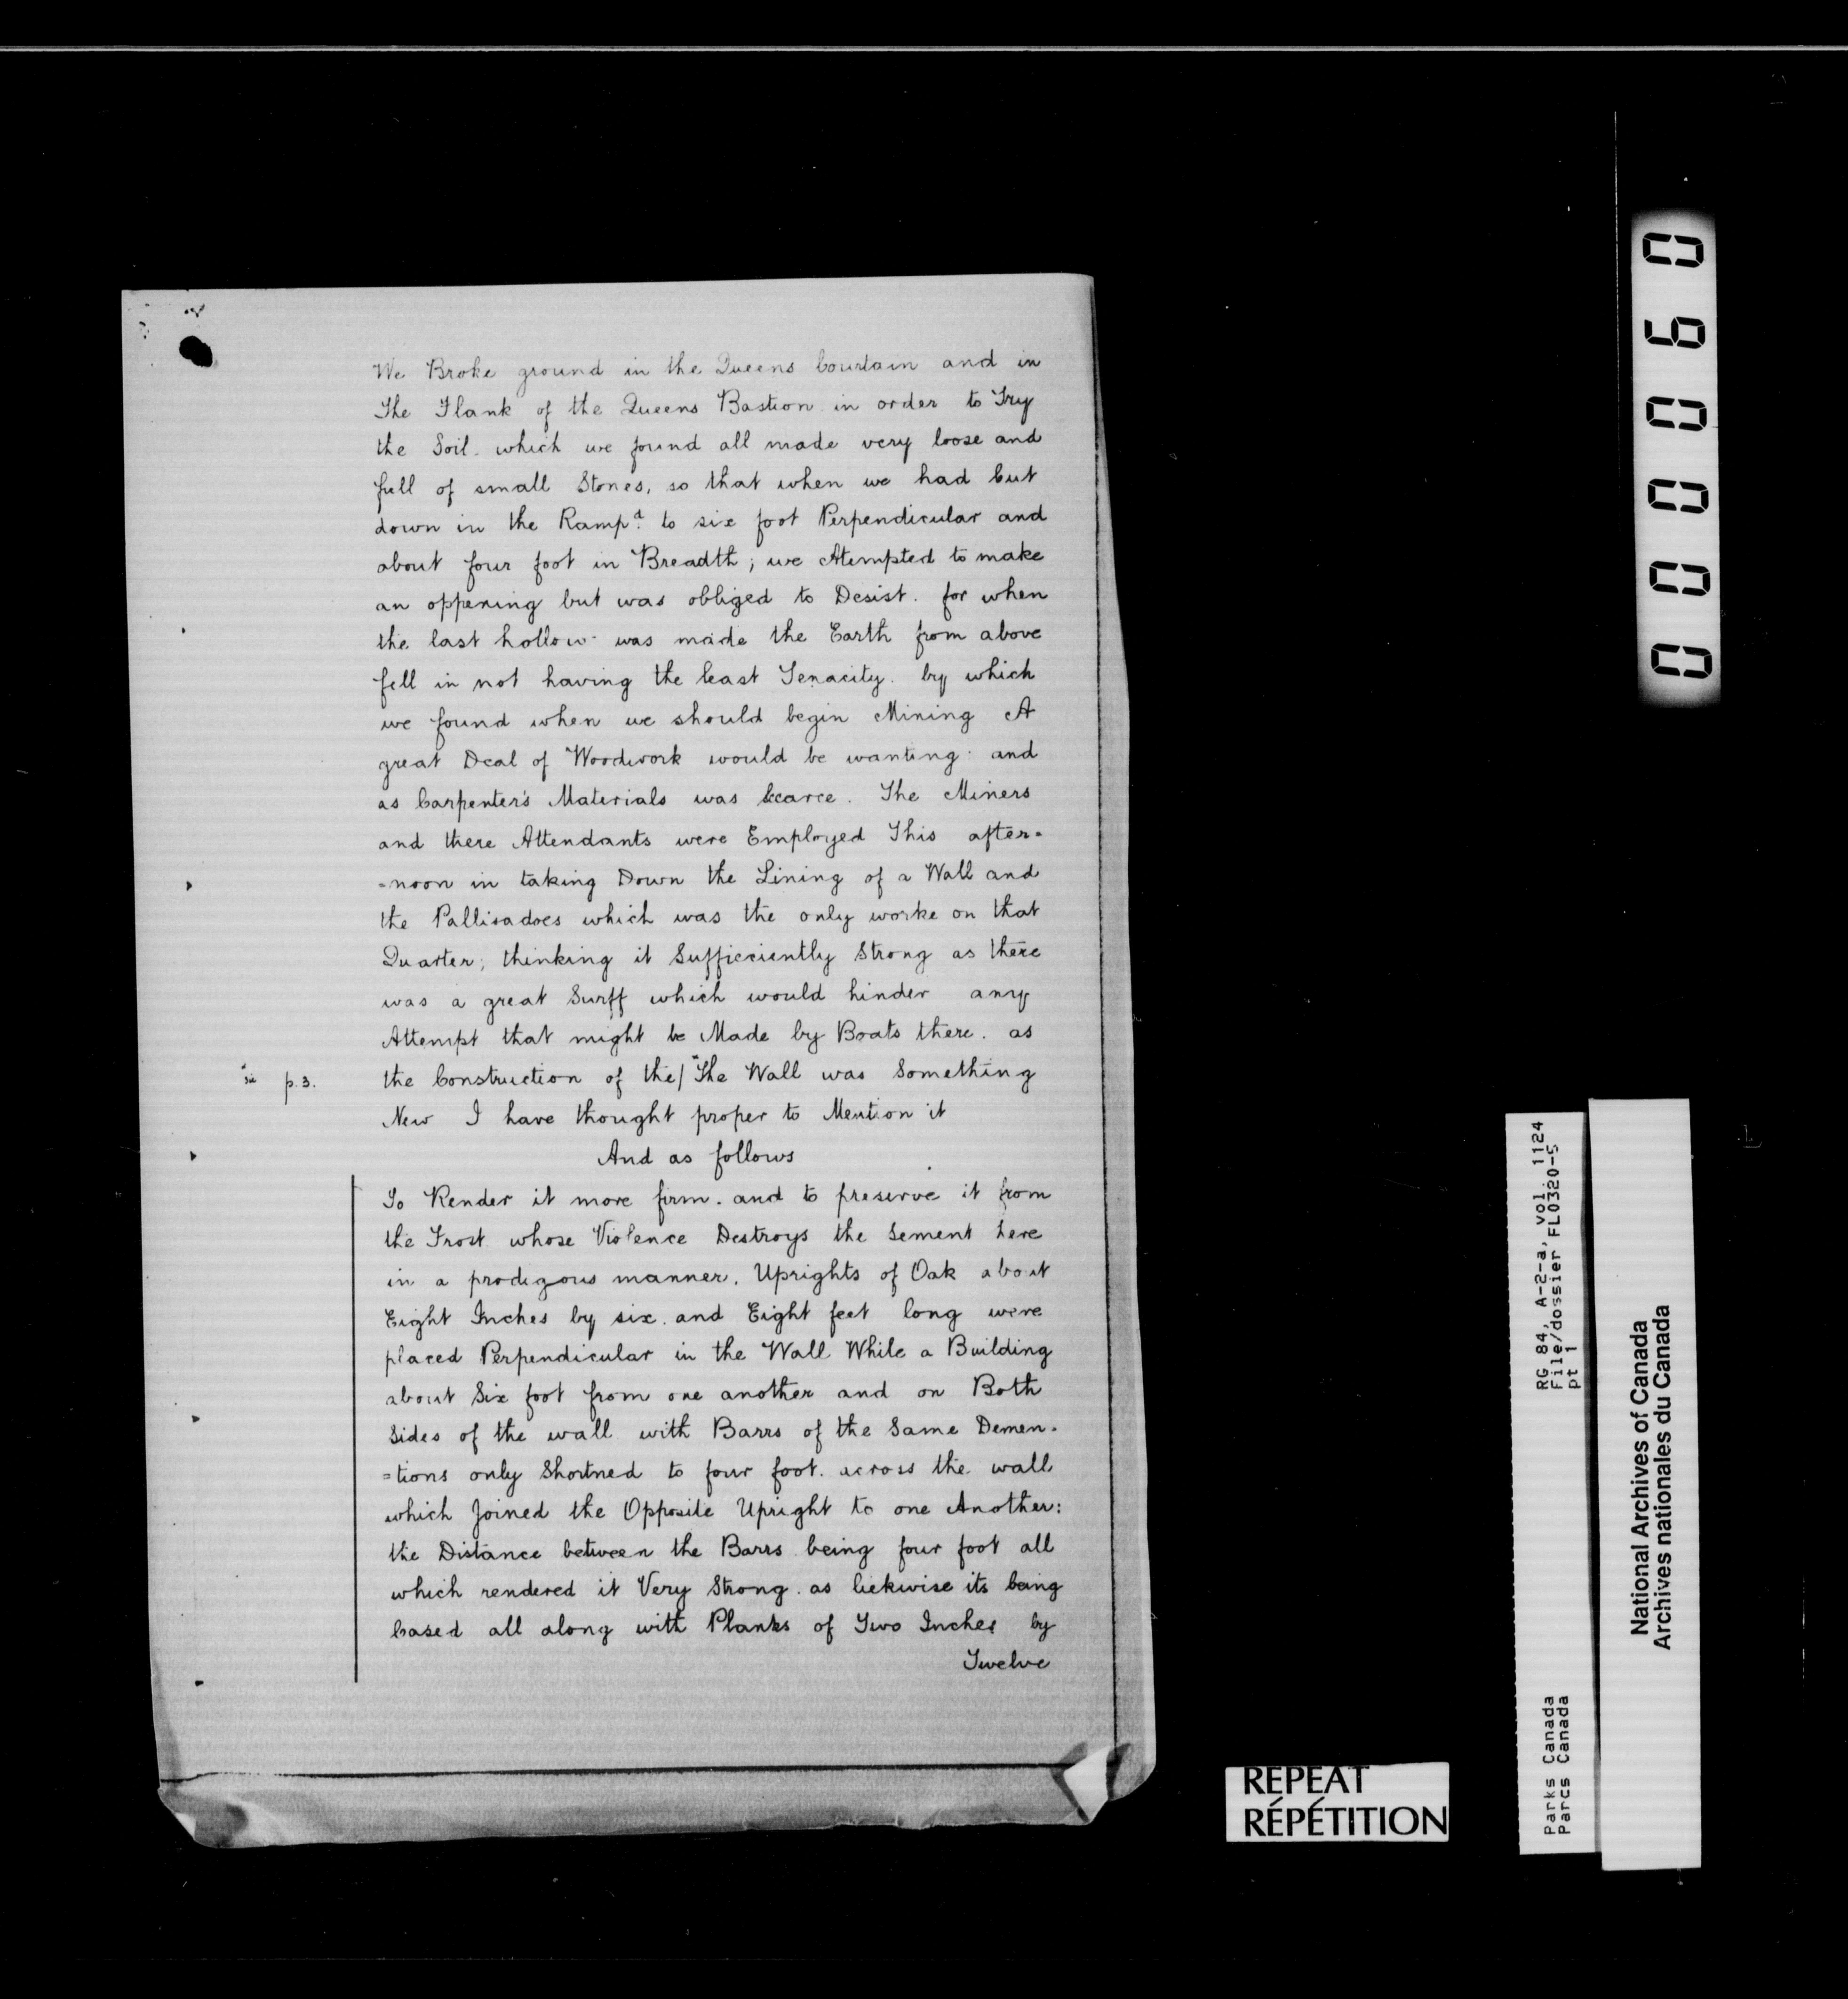 We Broke ground in the Queens Courtain and in
The Flank of the Queens Bastion in order to Try
the Soil. which we found all made very loose and
full of small Stones, so that when we had Cut
down in the Ramp.t to six foot Perpendicular and
about four foot in Breadth; we Atempted to make
an oppening but was obliged to Desist. for when
the last hollow was made the Earth from above
fell in not having the least Tenacity. by which
we found when we should begin Mining A
great Deal of Woodwork would be wanting and
as Carpenter's Materials was Scarce. The Miners
and there Attendants were Employed This after=
=noon in taking Down the Lining of a Wall and
the Pallisadoes which was the only worke on that
Quarter; thinking it Sufficciently Strong as there
was a great Surff which would hinder any
Attempt that might be Made by Boats there. as
sic p. 3. the Construction of the/ "The Wall was Something
New I have thought proper to Mention it
And as follows
To Render it more firm. and to preserve it from
the Frost whose Violence Destroys the Sement here
in a prodigous manner. Uprights of Oak about
Eight Inches by six. and Eight feet long were
placed Perpendicular in the Wall While a Building
about Six foot from one another and on Both
Sides of the wall with Barrs of the Same Demen=
=tions only Shortned to four foot. across the wall
which Joined the Opposite Upright to one Another:
the Distance between the Barrs being four foot all
which rendered it Very Strong. as liekwise its being
Cased all along with Planks of Two Inches by
Twelve
REPEAT
RÉPÉTITION
000060
RG 84, A-2-a, vol. 1124
File/dossier FL0320-5
pt 1
Parks Canada
Parcs Canada
National Archives of Canada
Archives nationales du Canada